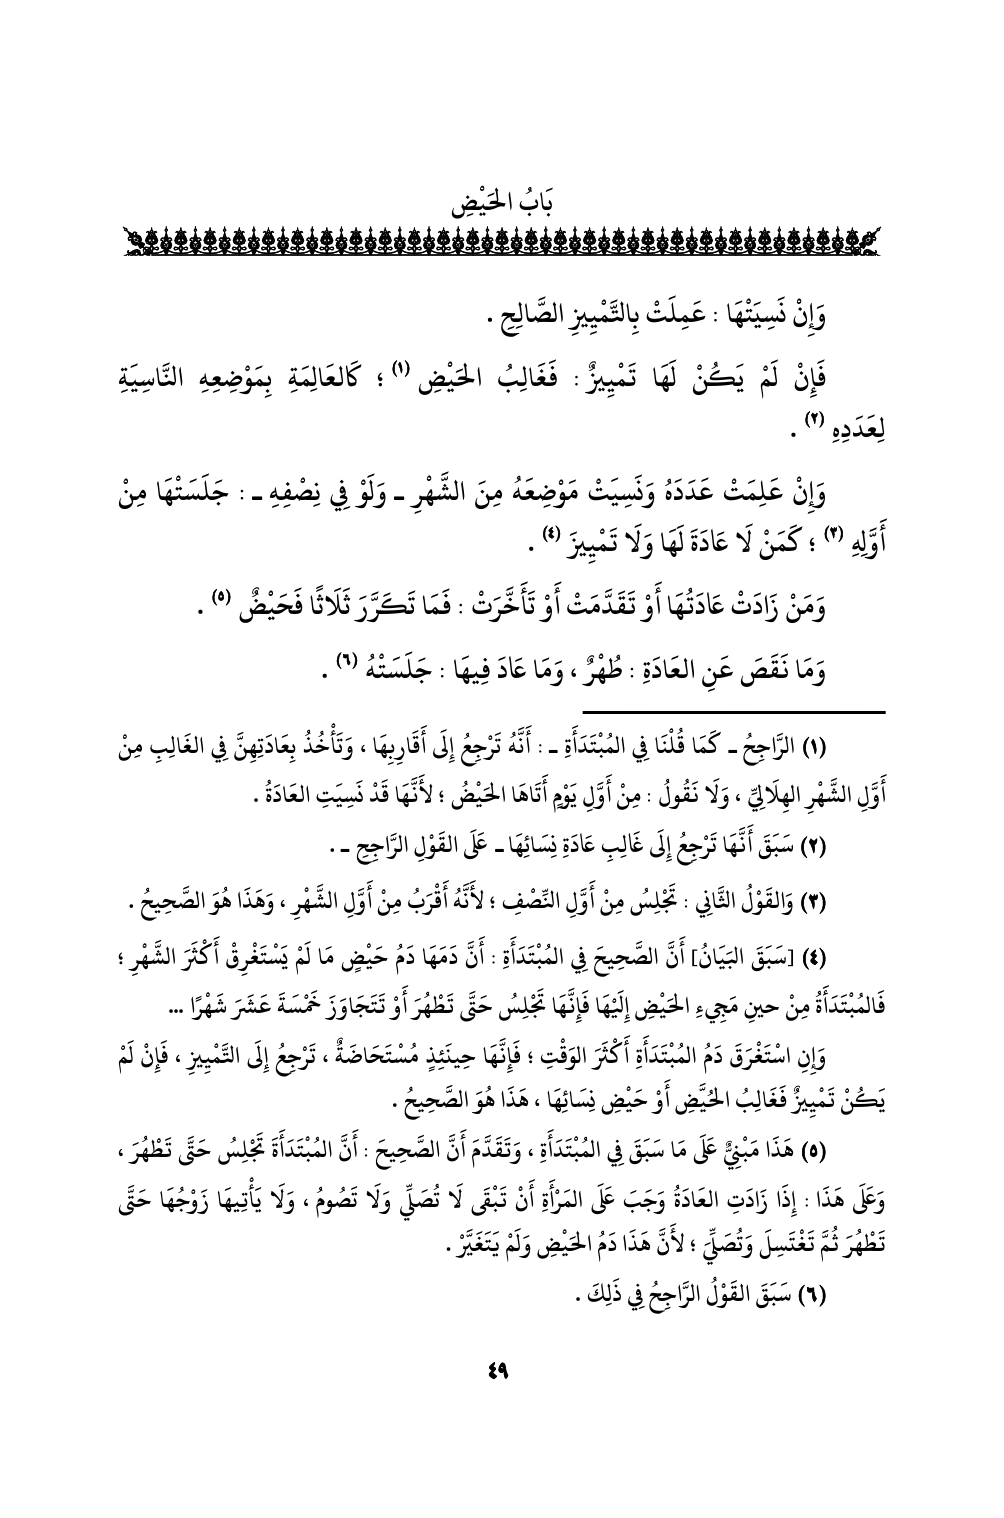 بَابُ الحَيْضِ
وَإِنْ نَسِيَتْهَا : عَمِلَتْ بِالتَّمْيِيزِ الصَّالِحِ .
فَإِنْ لَمْ يَكُنْ لَهَا تَمْيِيزٌ : فَغَالِبُ الحَيْضِ (١) ؛ كَالعَالِمَةِ بِمَوْضِعِهِ النَّاسِيَةِ
لِعَدَدِهِ (٢) .
وَإِنْ عَلِمَتْ عَدَدَهُ وَنَسِيَتْ مَوْضِعَهُ مِنَ الشَّهْرِ ـ وَلَوْ فِي نِصْفِهِ ـ : جَلَسَتْهَا مِنْ
أَوَّلِهِ (٣) ؛ كَمَنْ لَا عَادَةَ لَهَا وَلَا تَمْيِيزَ (٤) .
وَمَنْ زَادَتْ عَادَتُهَا أَوْ تَقَدَّمَتْ أَوْ تَأَخَّرَتْ : فَمَا تَكَرَّرَ ثَلَاثًا فَحَيْضٌ (٥) .
وَمَا نَقَصَ عَنِ العَادَةِ : طُهْرٌ ، وَمَا عَادَ فِيهَا : جَلَسَتْهُ (٦) .
(١) الرَّاجِحُ ـ كَمَا قُلْنَا فِي المُبْتَدَأَةِ ـ : أَنَّهُ تَرْجِعُ إِلَى أَقَارِبِهَا ، وَتَأْخُذُ بِعَادَتِهِنَّ فِي الغَالِبِ مِنْ
أَوَّلِ الشَّهْرِ الهِلَالِيِّ ، وَلَا نَقُولُ : مِنْ أَوَّلِ يَوْمٍ أَتَاهَا الحَيْضُ ؛ لأَنَّهَا قَدْ نَسِيَتِ العَادَةُ .
(٢) سَبَقَ أَنَّهَا تَرْجِعُ إِلَى غَالِبِ عَادَةِ نِسَائِهَا ـ عَلَى القَوْلِ الرَّاجِحِ ـ .
(٣) وَالقَوْلُ الثَّانِي : تَجْلِسُ مِنْ أَوَّلِ النِّصْفِ ؛ لأَنَّهُ أَقْرَبُ مِنْ أَوَّلِ الشَّهْرِ ، وَهَذَا هُوَ الصَّحِيحُ .
(٤) [سَبَقَ البَيَانُ] أَنَّ الصَّحِيحَ فِي المُبْتَدَأَةِ : أَنَّ دَمَهَا دَمُ حَيْضٍ مَا لَمْ يَسْتَغْرِقْ أَكْثَرَ الشَّهْرِ ؛
فَالمُبْتَدَأَةُ مِنْ حينِ مَجِيءِ الحَيْضِ إِلَيْهَا فَإِنَّهَا تَجْلِسُ حَتَّى تَطْهُرَ أَوْ تَتَجَاوَزَ خَمْسَةَ عَشَرَ شَهْرًا ...
وَإِنِ اسْتَغْرَقَ دَمُ المُبْتَدَأَةِ أَكْثَرَ الوَقْتِ ؛ فَإِنَّهَا حِينَئِذٍ مُسْتَحَاضَةٌ ، تَرْجِعُ إِلَى التَّمْيِيزِ ، فَإِنْ لَمْ
يَكُنْ تَمْيِيزٌ فَغَالِبُ الحُيَّضِ أَوْ حَيْضِ نِسَائِهَا ، هَذَا هُوَ الصَّحِيحُ .
(٥) هَذَا مَبْنِيٌّ عَلَى مَا سَبَقَ فِي المُبْتَدَأَةِ ، وَتَقَدَّمَ أَنَّ الصَّحِيحَ : أَنَّ المُبْتَدَأَةَ تَجْلِسُ حَتَّى تَطْهُرَ ،
وَعَلَى هَذَا : إِذَا زَادَتِ العَادَةُ وَجَبَ عَلَى المَرْأَةِ أَنْ تَبْقَى لَا تُصَلِّي وَلَا تَصُومُ ، وَلَا يَأْتِيهَا زَوْجُهَا حَتَّى
تَطْهُرَ ثُمَّ تَغْتَسِلَ وَتُصَلِّيَ ؛ لأَنَّ هَذَا دَمُ الحَيْضِ وَلَمْ يَتَغَيَّرْ .
(٦) سَبَقَ القَوْلُ الرَّاجِحُ فِي ذَلِكَ .
٤٩